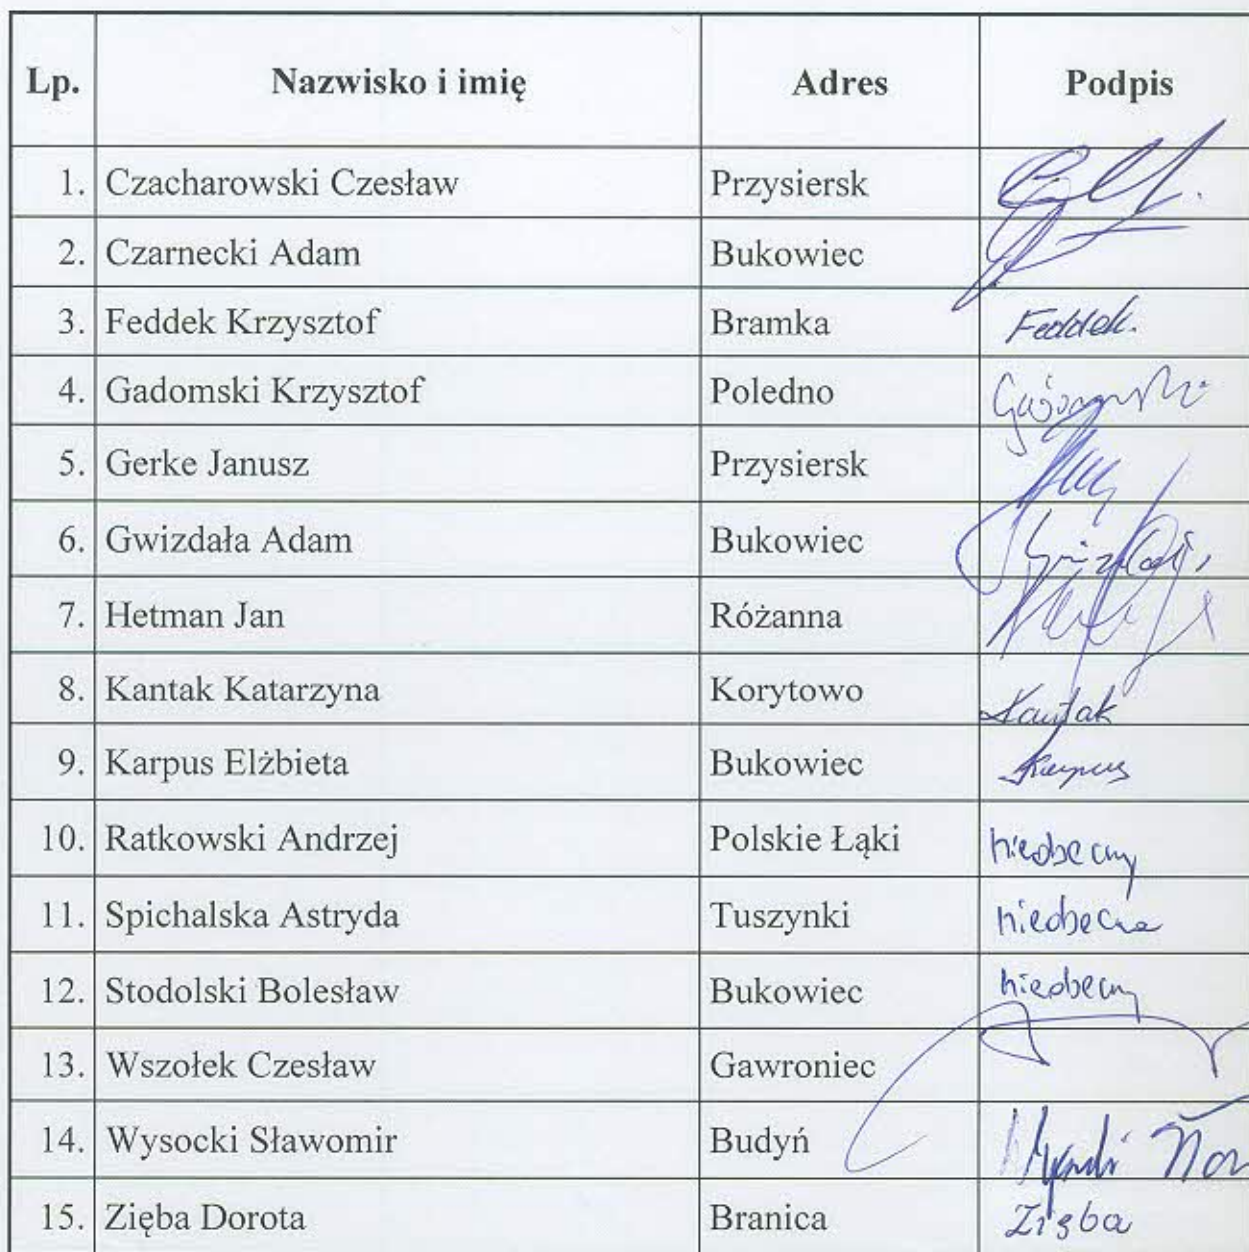 Lp. Nazwisko i imię Adres Podpis
1. Czacharowski Czesław Przysiersk
2. Czarnecki Adam Bukowiec
3. Feddek Krzysztof Bramka Feddek.
4. Gadomski Krzysztof Poledno Gadomski
5. Gerke Janusz Przysiersk
6. Gwizdała Adam Bukowiec
7. Hetman Jan Różanna
8. Kantak Katarzyna Korytowo Kantak
9. Karpus Elżbieta Bukowiec Karpus
10. Ratkowski Andrzej Polskie Łąki nieobecny
11. Spichalska Astryda Tuszynki nieobecna
12. Stodolski Bolesław Bukowiec nieobecny
13. Wszołek Czesław Gawroniec
14. Wysocki Sławomir Budyń
15. Zięba Dorota Branica Zięba